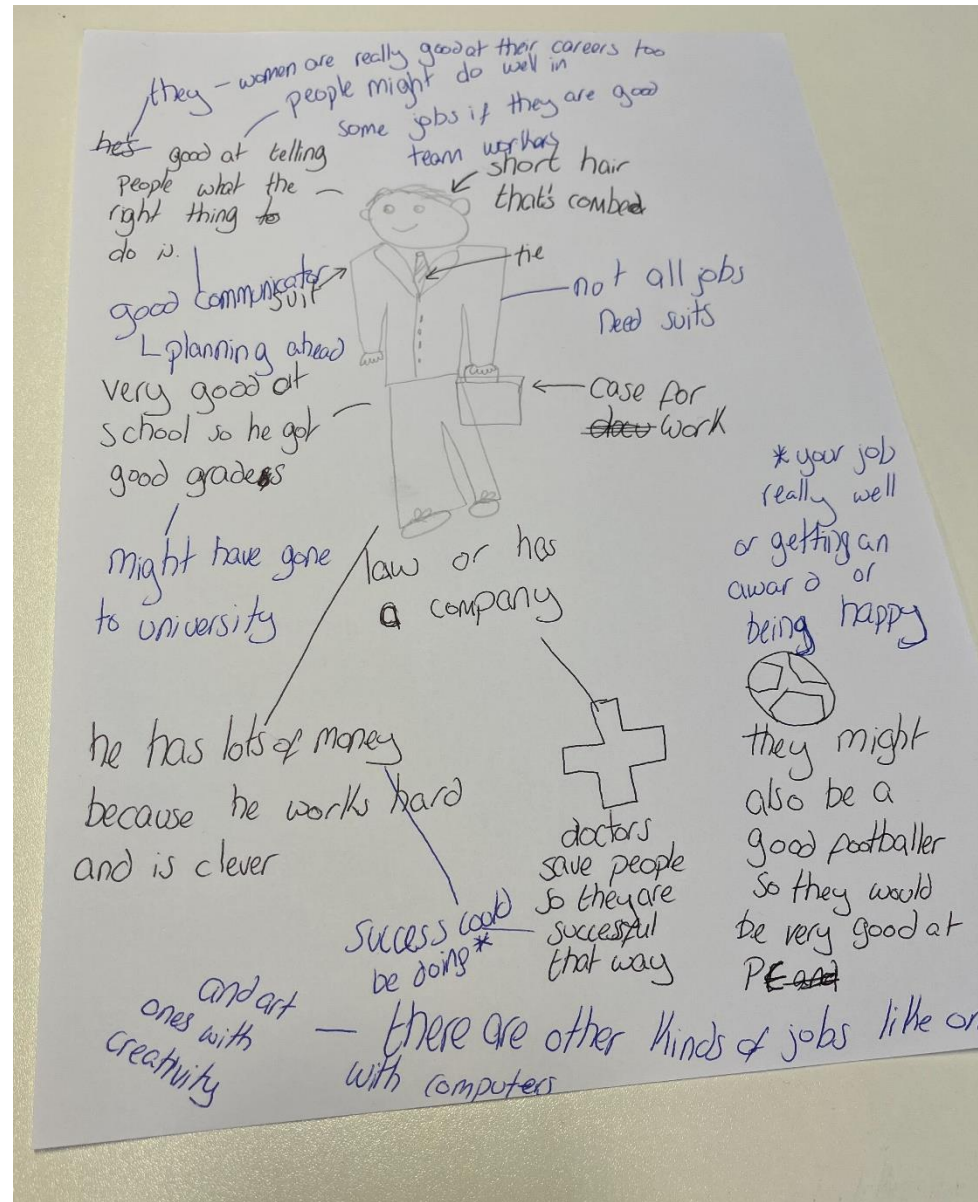 they - women are really good at their careers too
people might do well in
some jobs if they are good
team workers
he's good at telling
people what the
right thing to
do is.
short hair
that's combed
tie
suit
good communicator
planning ahead
not all jobs
need suits
very good at
school so he got
good grades
case for
docu work
might have gone
to university
law or has
a company
* your job
really well
or getting an
award or
being happy
he has lots of money
because he works hard
and is clever
doctors
save people
so they are
successful
that way
they might
also be a
good footballer
so they would
be very good at
PE and
success could
be doing *
and art
ones with
creativity
there are other kinds of jobs like on
with computers